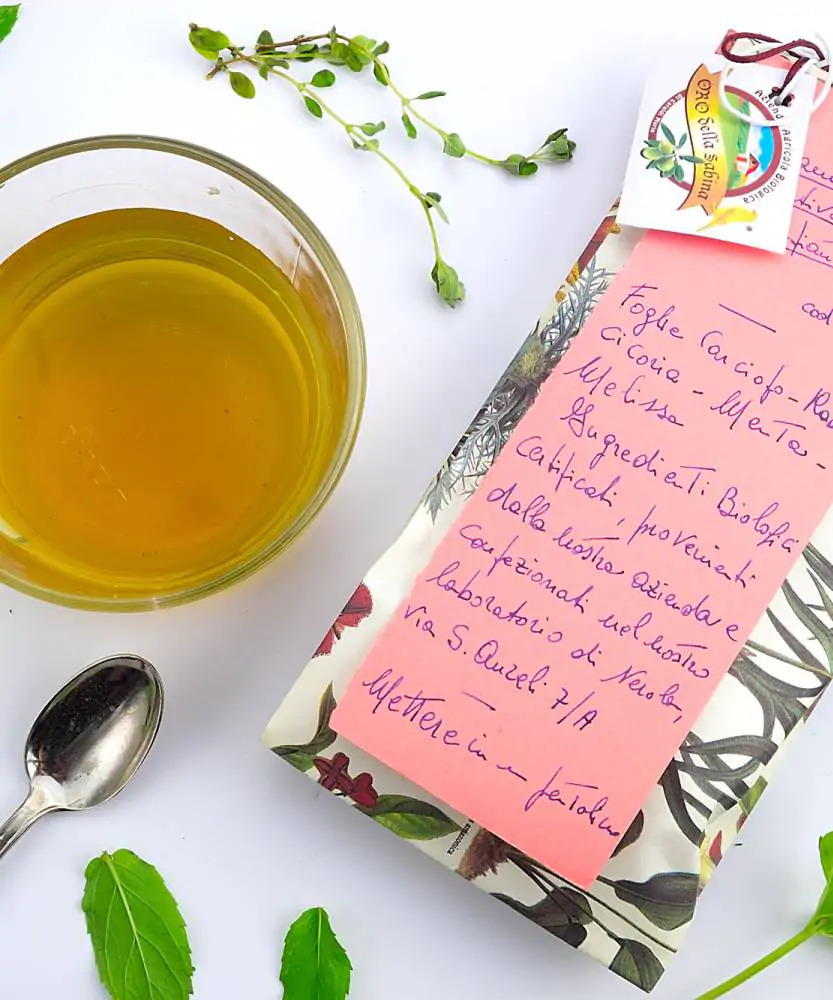 Azienda Agricola Biologica
ORO della Sabina
®
Foglie Carciofo -
cicoria - Menta -
Melissa
Ingredienti Biologici
Certificati, provenienti
dalla nostra azienda e
confezionati nel nostro
laboratorio di Nerola,
via S. Aureli 7/A
Mettere in un pentolino